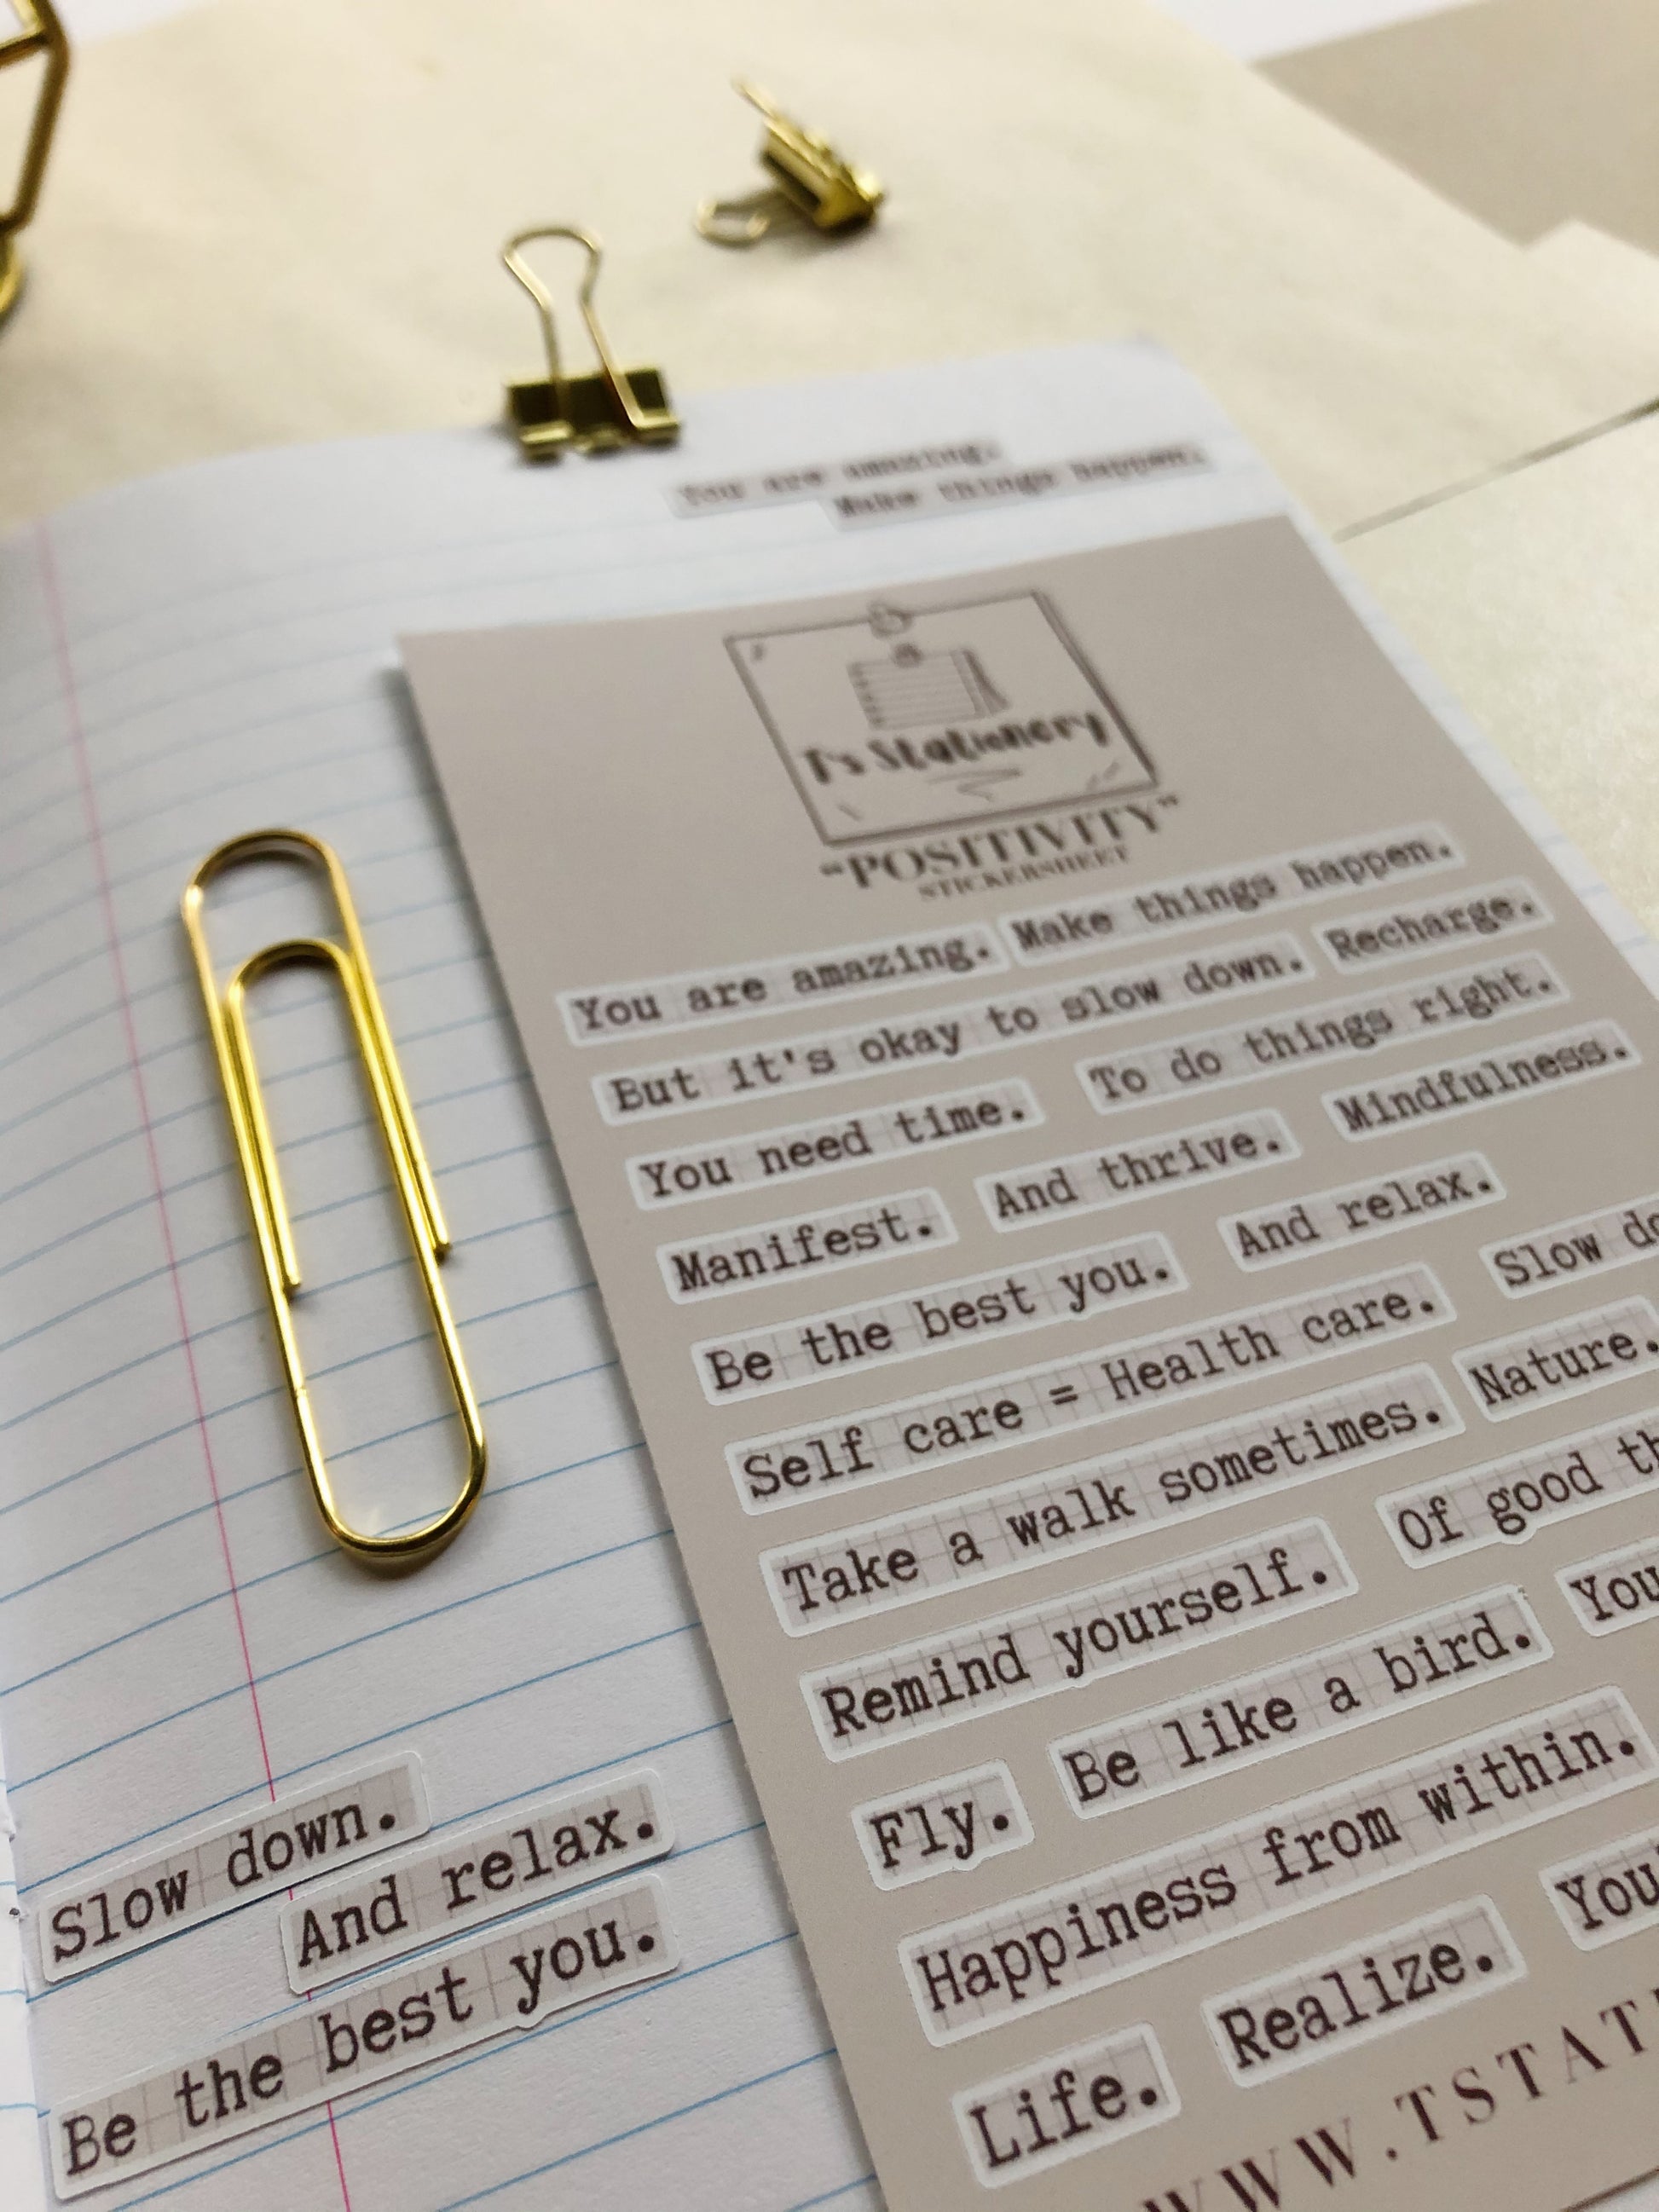 You are amazing.
Make things happen.
T's Stationery
"POSITIVITY"
STICKERSHEET
You are amazing. Make things happen.
But it's okay to slow down. Recharge.
You need time. To do things right.
Manifest. And thrive. Mindfulness.
Be the best you. And relax.
Self care = Health care. Slow do
Take a walk sometimes. Nature.
Remind yourself. Of good th
Fly. Be like a bird. You
Happiness from within.
Life. Realize. You'
WWW.TSTAT
Slow down.
And relax.
Be the best you.